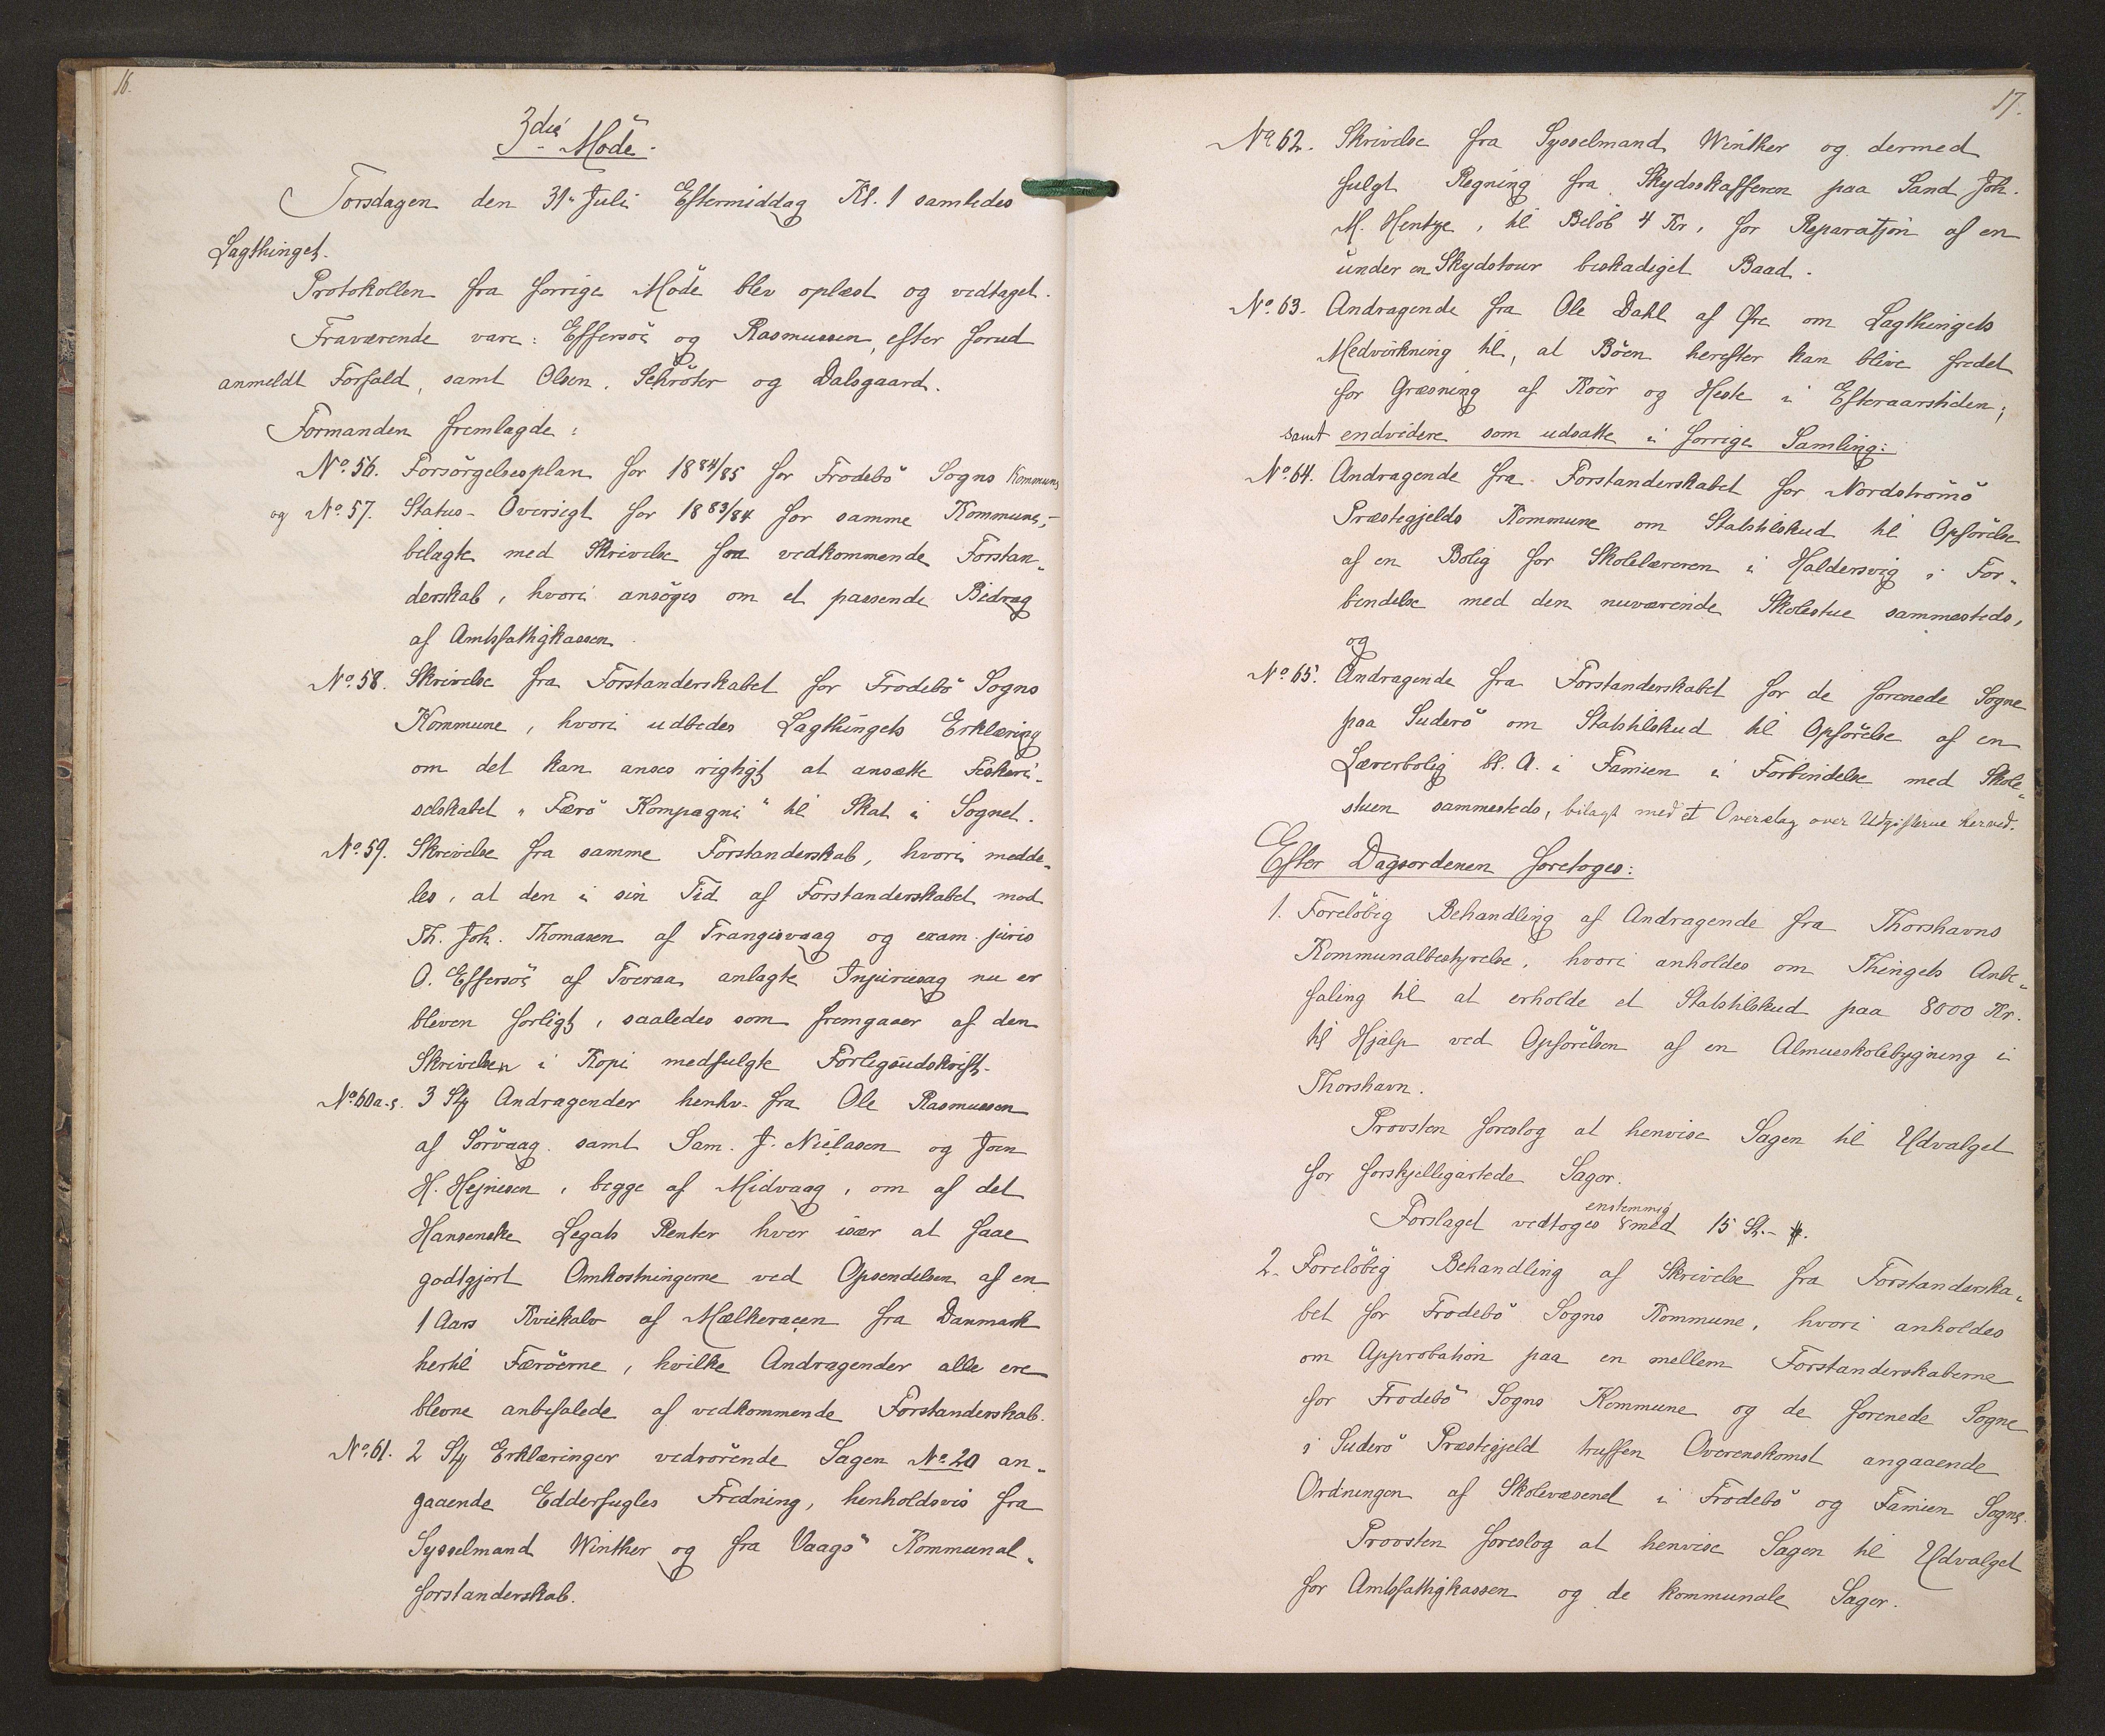 16.
3die Møde.
Torsdagen den 31. Juli Eftermiddag Kl. 1 samledes
Lagthinget.
Protokollen fra forrige Møde blev oplæst og vedtaget.
Fraværende vare: Effersöe og Rasmussen, efter forud
anmeldt Forfald, samt Olsen, Schröter og Dalsgaard.
Formanden fremlagde:
No. 56. Forsörgelsesplan for 1884/85 for Frodebö Sogns Kommune
og No. 57. Status-Oversigt for 1883/84 for samme Kommune,
bilagte med Skrivelse fra vedkommende Forstan-
derskab, hvori ansöges om et passende Bidrag
af Amtsfattigkassen.
No. 58. Skrivelse fra Forstanderskabet for Frodebö Sogns
Kommune, hvori udbedes Lagthingets Erklæring
om det kan anses rigtigt at ansætte Fiskeri-
selskabet "Færö Kompagni" til Skat i Sognet.
No. 59. Skrivelse fra samme Forstanderskab, hvori medde-
les, at den i sin Tid af Forstanderskabet mod
Th. Joh. Thomasen af Trangisvaag og exam. juris
O. Effersöe af Tveraa anlagte Injuriesag nu er
bleven forligt, saaledes som fremgaaer af den
Skrivelsen i Kopi medfulgte Forligsudskrift.
No. 60a-c. 3 Stk Andragender henhv. fra Ole Rasmussen
af Sörvaag samt Sam. J. Nielasen og Joen
H. Hejnesen, begge af Midvaag, om af det
Hansenske Legats Renter hver især at faae
godtgjort Omkostningerne ved Opsendelsen af en
1 Aars Kviekalv af Malkeracen fra Danmark
hertil Færöerne, hvilke Andragender alle ere
blevne anbefalede af vedkommende Forstanderskab.
No. 61. 2 Stk Erklæringer vedrörende Sagen No. 20 an-
gaaende Edderfugles Fredning, henholdsvis fra
Sysselmand Winther og fra Vaagö Kommunal-
forstanderskab.
17.
No. 62. Skrivelse fra Sysselmand Winther og dermed
fulgt Regning fra Skydsskafferen paa Sand Joh.
M. Hentze, til Belöb 4 Kr, for Reparation af en
under en Skydstour beskadiget Baad.
No. 63. Andragende fra Ole Dahl af Öre om Lagthingets
Medvirkning til, at Böen herefter kan blive fredet
for Græsning af Köer og Heste i Efteraarstiden;
samt endvidere som udsatte i forrige Samling:
No. 64. Andragende fra Forstanderskabet for Nordströmö
Præstegjelds Kommune om Statstilskud til Opförelse
af en Bolig for Skolelæreren i Haldersvig i For-
bindelse med den nuværende Skolestue sammesteds,
og
No. 65. Andragende fra Forstanderskabet for de forenede Sogne
paa Suderö om Statstilskud til Opförelse af en
Lærerbolig bl. A. i Famien i Forbindelse med Skole-
stuen sammesteds, bilagt med et Overslag over Udgifterne herved.
Efter Dagsordenen foretoges:
1. Forelöbig Behandling af Andragende fra Thorshavns
Kommunalbestyrelse, hvori anholdes om Thingets Anbe-
faling til at erholde et Statstilskud paa 8000 Kr.
til Hjælp ved Opförelsen af en Almueskolebygning i
Thorshavn.
Provsten foreslog at henvise Sagen til Udvalget
for forskjelligartede Sager.
enstemmig
Forslaget vedtoges med 15 St.
2. Forelöbig Behandling af Skrivelse fra Forstanderska-
bet for Frodebö Sogns Kommune, hvori anholdes
om Approbation paa en mellem Forstanderskaberne
for Frodebö Sogns Kommune og de forenede Sogne
i Suderö Præstegjeld truffen Overenskomst angaaende
Ordningen af Skolevæsenet i Frodebö og Famien Sogne.
Provsten foreslog at henvise Sagen til Udvalget
for Amtsfattigkassen og de kommunale Sager.